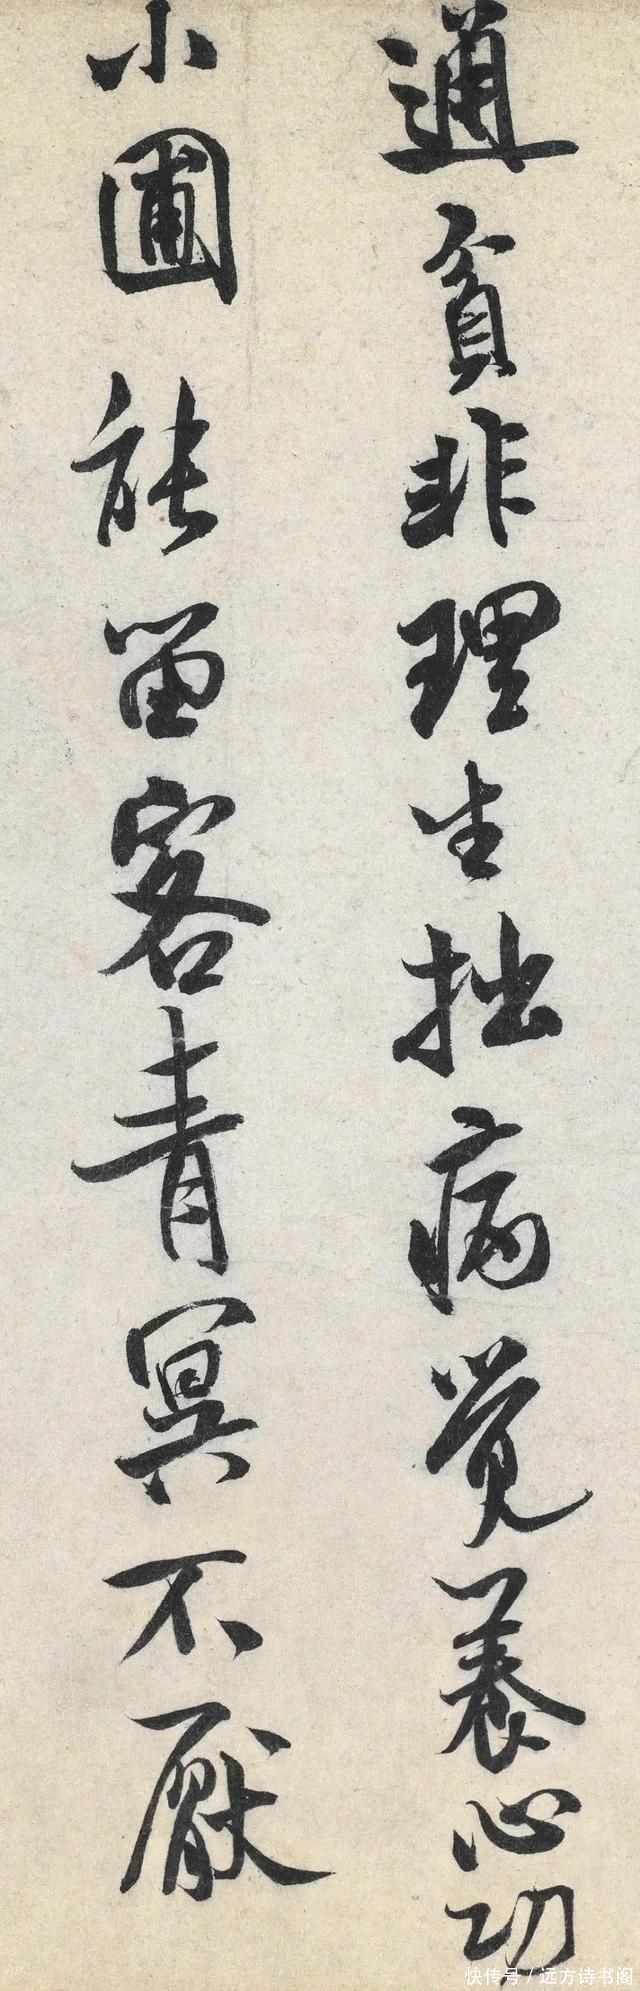 通貧非理生拙病覺養心功
小圃能留客青冥不厭
快传号/远方诗书阁